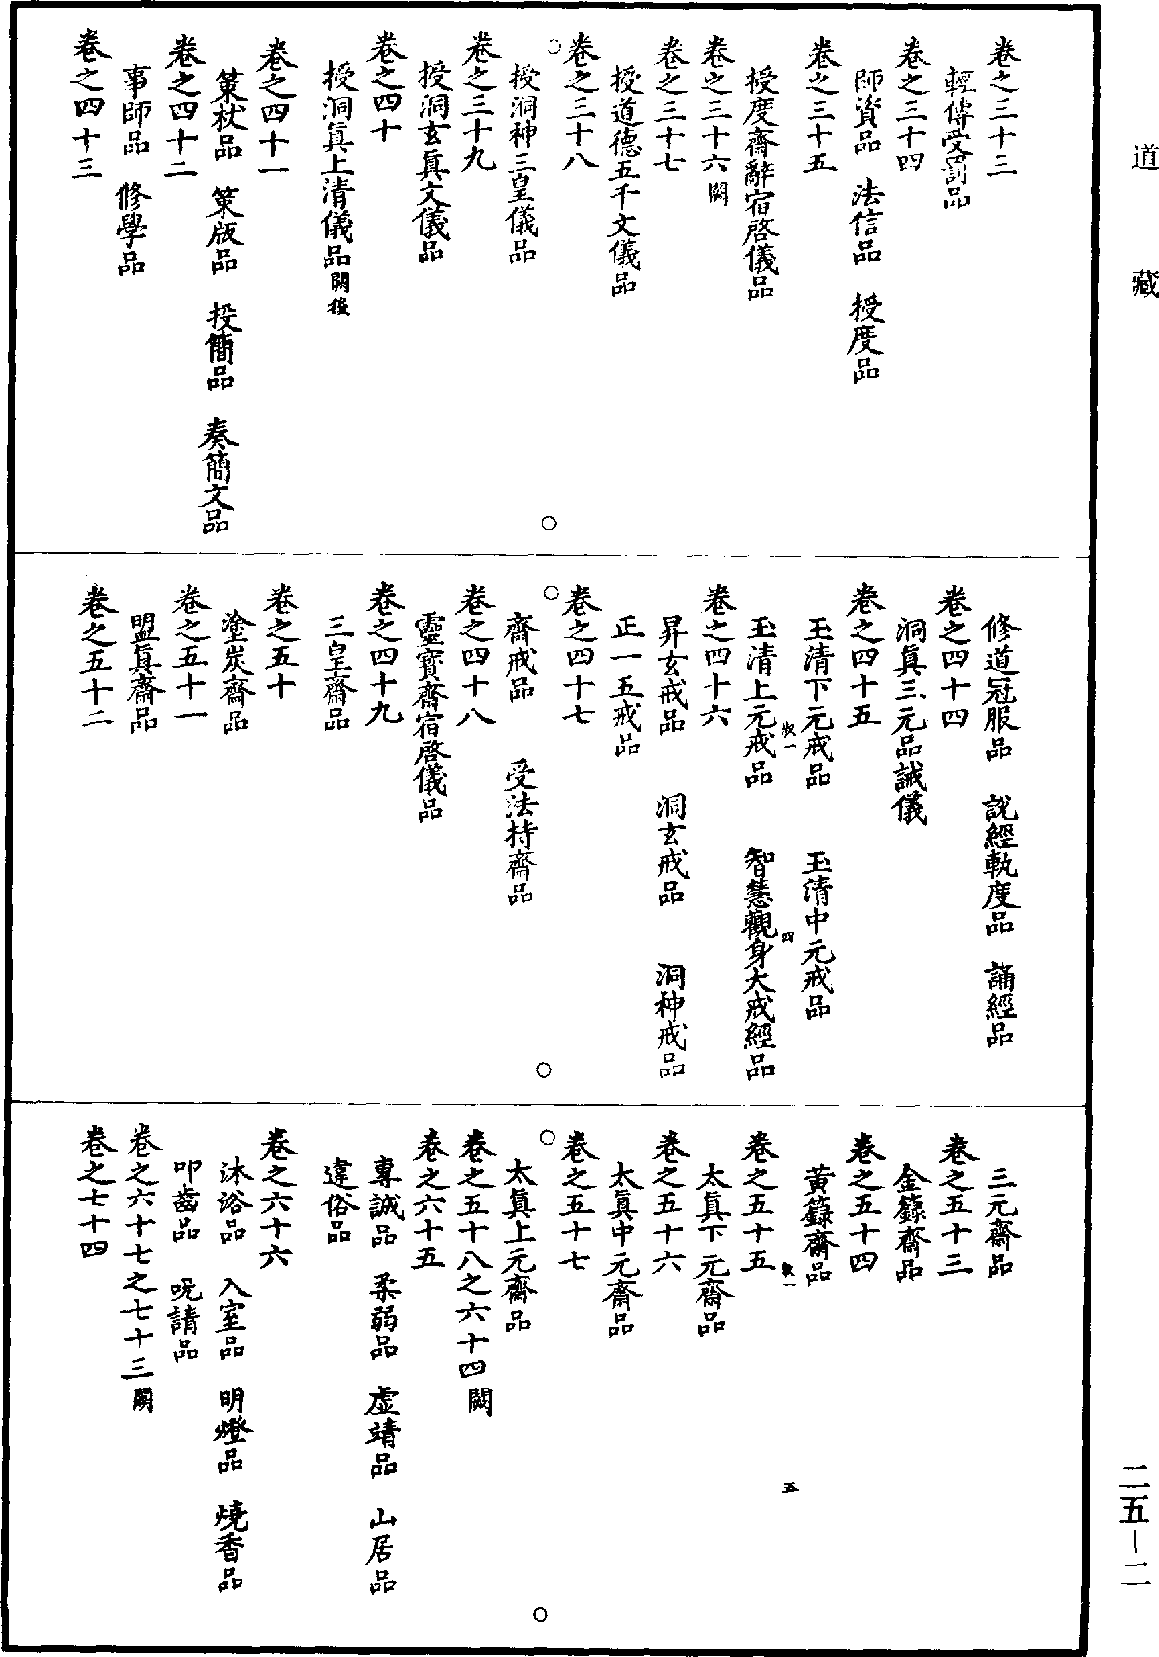 道藏
卷之三十三
輕傳受罰品
卷之三十四
師資品　法信品　授度品
卷之三十五
授度齋辭宿啓儀品
卷之三十六闕
卷之三十七
授道德五千文儀品
卷之三十八
授洞神三皇儀品
卷之三十九
授洞玄真文儀品
卷之四十
授洞真上清儀品闕後
卷之四十一
策杖品　策版品　投簡品　奏簡文品
卷之四十二
事師品　修學品
卷之四十三
修道冠服品　說經軌度品　誦經品
卷之四十四
洞真三元品誡儀
卷之四十五
玉清下元戒品　玉清中元戒品
玉清上元戒品　智慧觀身大戒經品
卷之四十六
昇玄戒品　洞玄戒品　洞神戒品
正一五戒品
卷之四十七
齋戒品　受法持齋品
卷之四十八
靈寶齋宿啓儀品
卷之四十九
三皇齋品
卷之五十
塗炭齋品
卷之五十一
盟真齋品
卷之五十二
三元齋品
卷之五十三
金籙齋品
卷之五十四
黃籙齋品
卷之五十五
太真下元齋品
卷之五十六
太真中元齋品
卷之五十七
太真上元齋品
卷之五十八之六十四闕
卷之六十五
專誠品　柔弱品　虛靖品　山居品
違俗品
卷之六十六
沐浴品　入室品　明燈品　燒香品
叩齒品　呪請品
卷之六十七之七十三闕
卷之七十四
二五—二